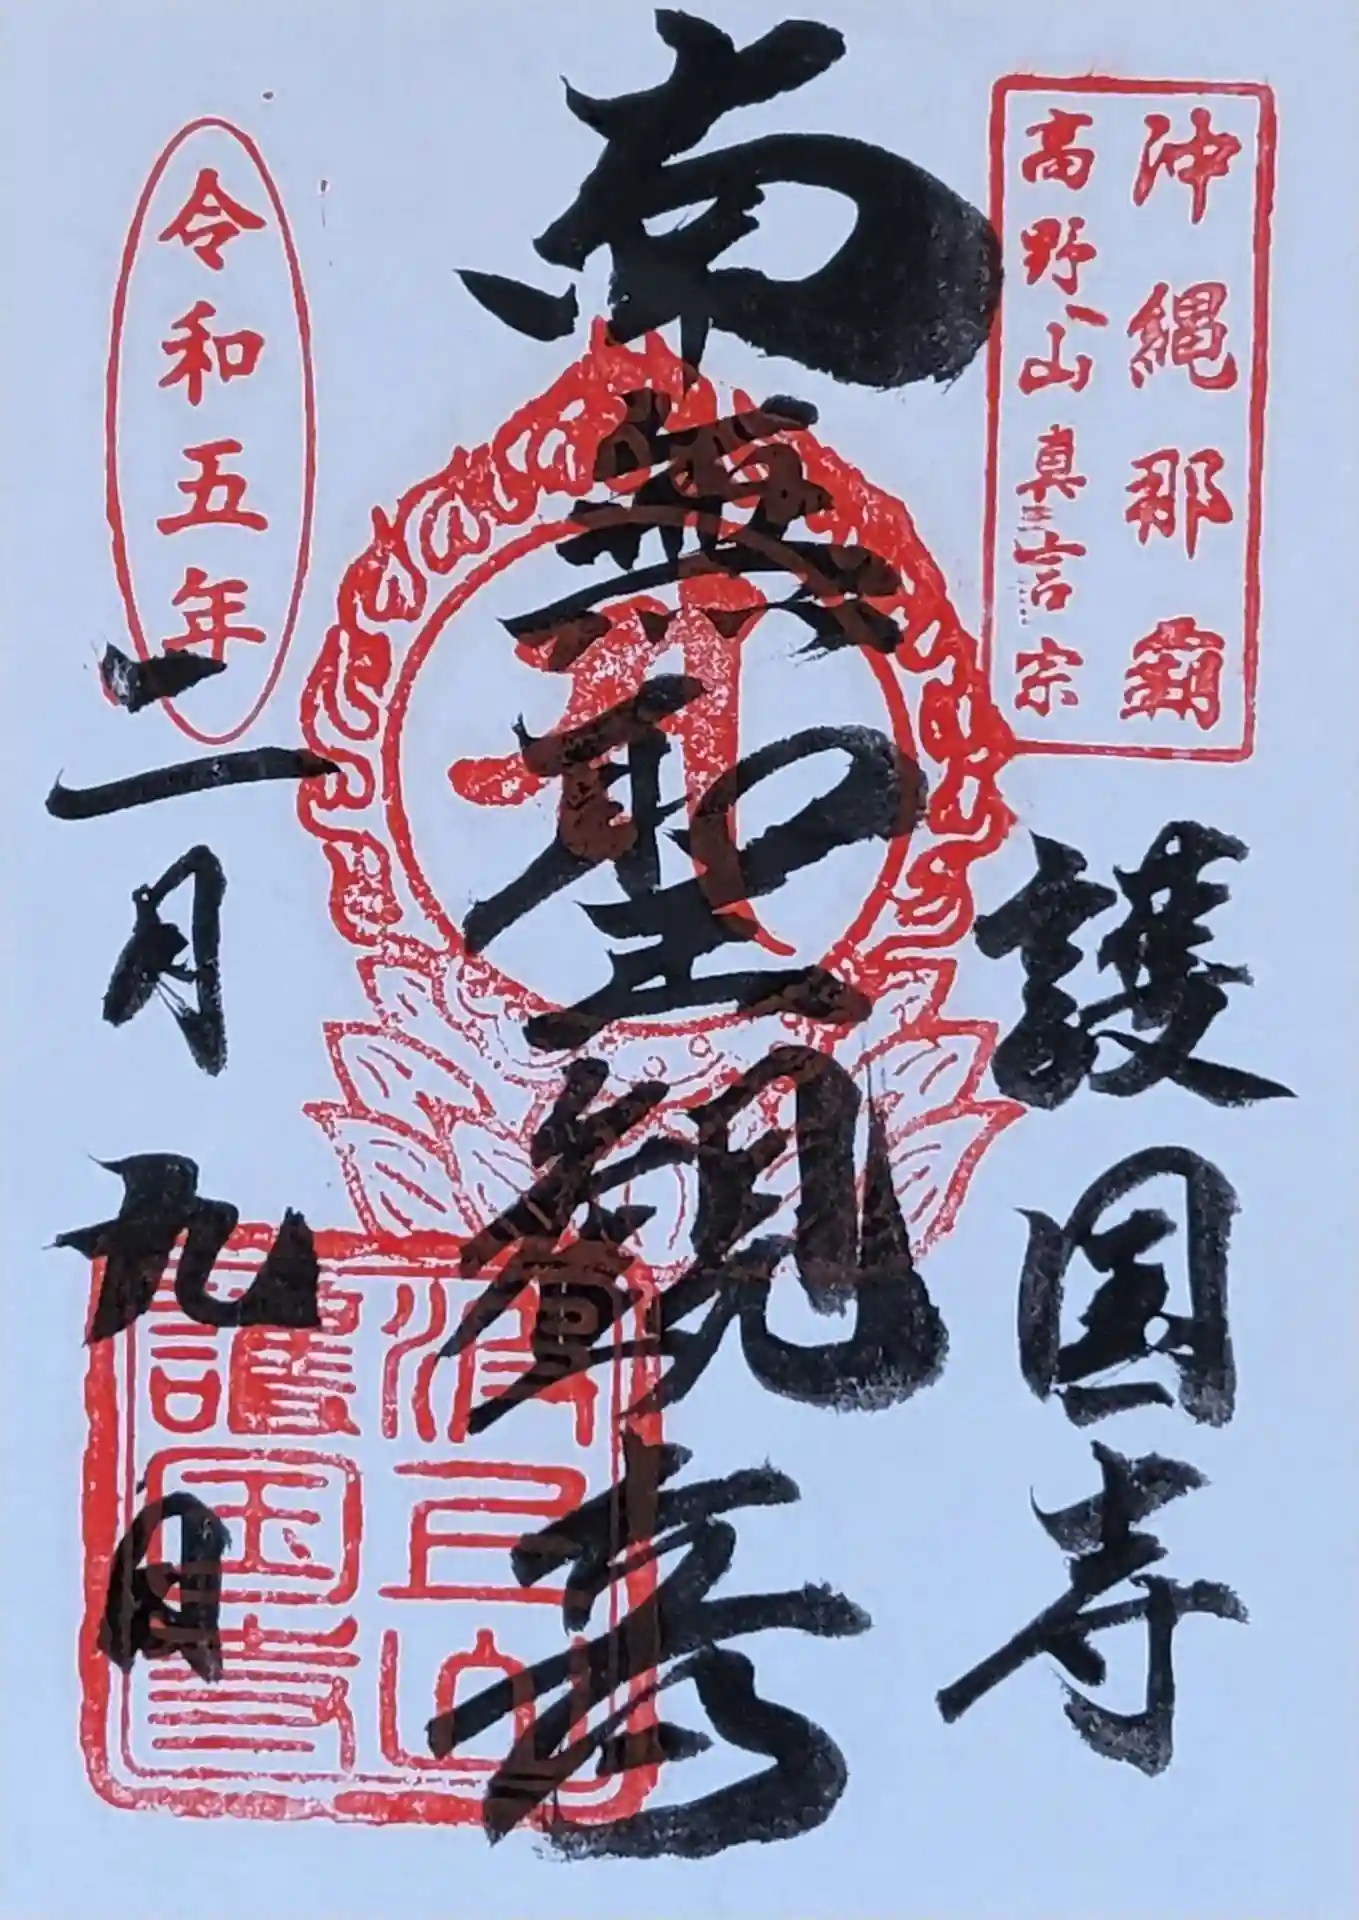 沖縄那覇
高野山真言宗
護国寺
南無聖観音
令和五年
二月九日
波上山
護国寺